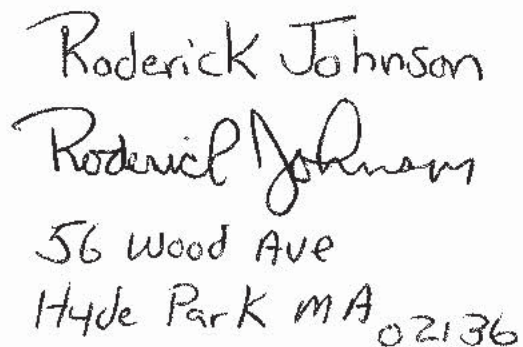 Roderick Johnson
Roderick Johnson
56 Wood Ave
Hyde Park MA 02136